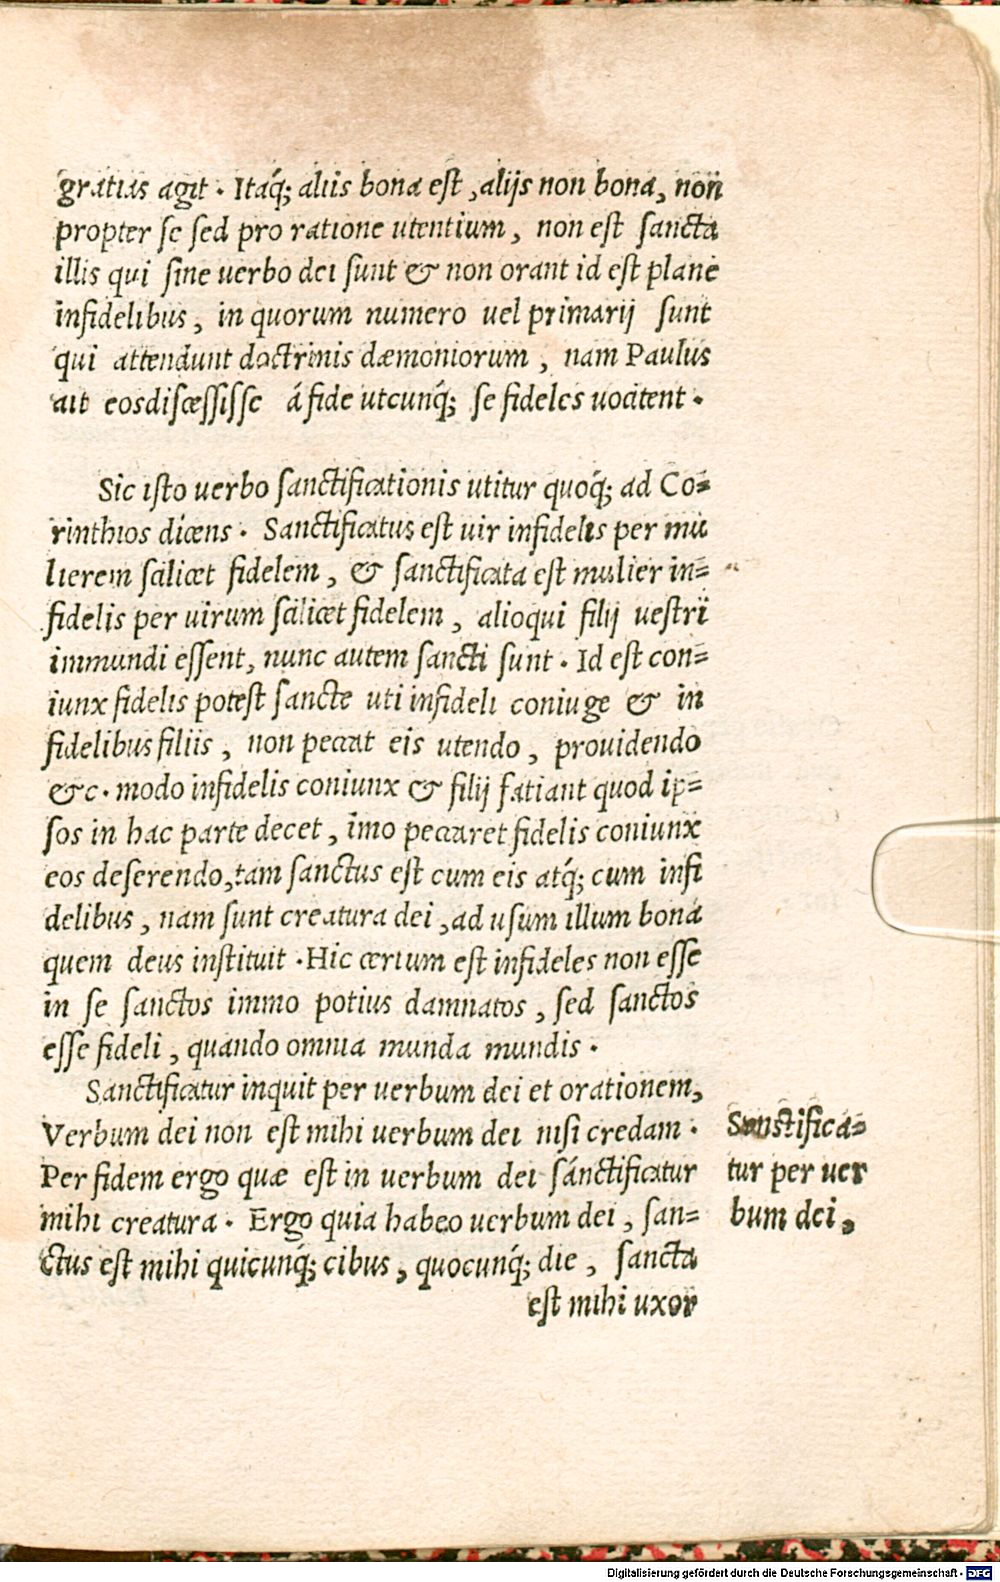 gratias agit . Itaq́; aliis bona est , alijs non bona, non
propter se sed pro ratione utentium , non est sancta
illis qui sine uerbo dei sunt & non orant id est plane
infidelibus , in quorum numero uel primarij sunt
qui attendunt doctrinis dæmoniorum , nam Paulus
ait eos discessisse á fide utcunq́; se fideles uocitent .
Sic isto uerbo sanctificationis utitur quoq́; ad Co=
rinthios dicens . Sanctificatus est uir infidelis per mu
lierem scilicet fidelem , & sanctificata est mulier in=
fidelis per uirum scilicet fidelem , alioqui filij uestri
immundi essent, nunc autem sancti sunt . Id est con=
iunx fidelis potest sancte uti infideli coniuge & in
fidelibus filiis , non peccat eis utendo , prouidendo
&c . modo infidelis coniunx & filij fatiant quod ip=
sos in hac parte decet , imo peccaret fidelis coniunx
eos deserendo, tam sanctus est cum eis atq́; cum infi
delibus , nam sunt creatura dei , ad usum illum bona
quem deus instituit . Hic certum est infideles non esse
in se sanctos immo potius damnatos , sed sanctos
esse fideli , quando omnia munda mundis .
Sanctificatur inquit per uerbum dei et orationem,
Verbum dei non est mihi uerbum dei nisi credam .
Per fidem ergo quæ est in uerbum dei sánctificatur
mihi creatura . Ergo quia habeo uerbum dei , san=
ctus est mihi quicunq́; cibus , quocunq́; die , sancta
est mihi uxor
Sanstifica=
tur per uer
bum dei,
Digitalisierung gefördert durch die Deutsche Forschungsgemeinschaft - DFG